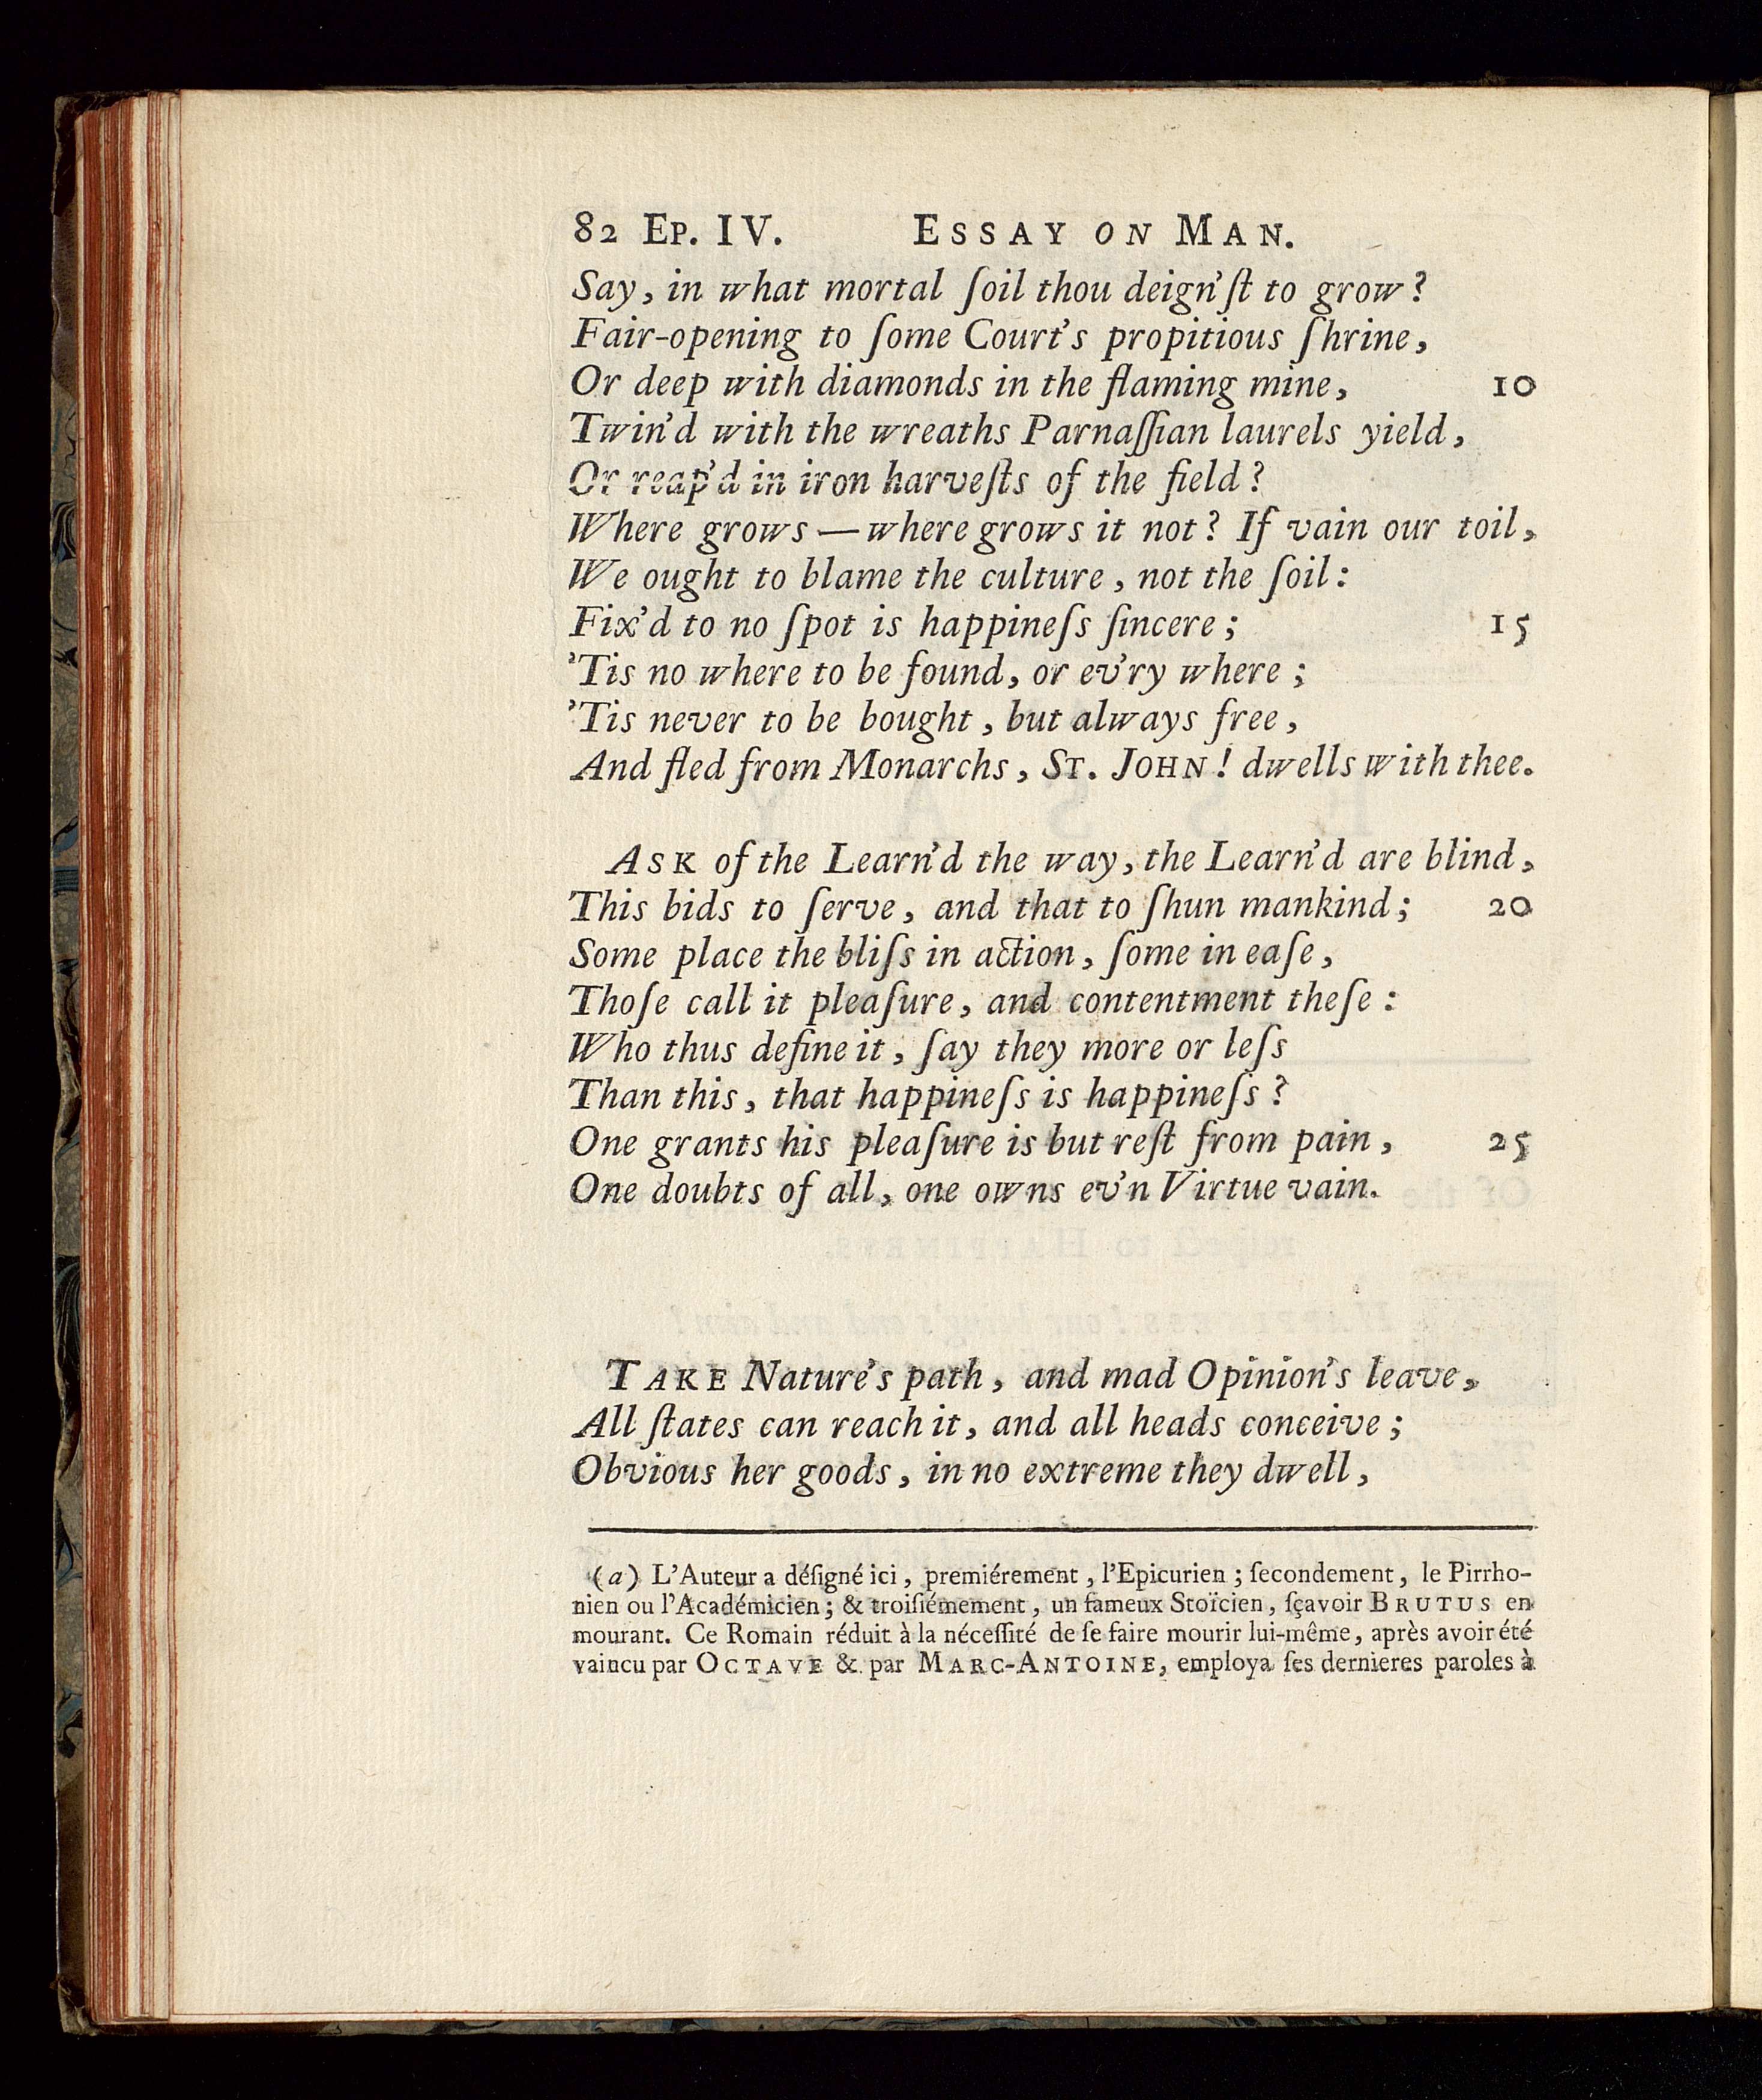 82 EP. IV. ESSAY ON MAN.
Say, in what mortal ſoil thou deign'ſt to grow?
Fair-opening to ſome Court's propitious ſhrine,
Or deep with diamonds in the flaming mine, 10
Twin'd with the wreaths Parnaſſian laurels yield,
Or reap'd in iron harveſts of the field?
Where grows — where grows it not? If vain our toil,
We ought to blame the culture, not the ſoil:
Fix'd to no ſpot is happineſs ſincere; 15
'Tis no where to be found, or ev'ry where;
'Tis never to be bought, but always free,
And fled from Monarchs, ST. JOHN! dwells with thee.
ASK of the Learn'd the way, the Learn'd are blind,
This bids to ſerve, and that to ſhun mankind; 20
Some place the bliſs in action, ſome in eaſe,
Thoſe call it pleaſure, and contentment theſe:
Who thus define it, ſay they more or leſs
Than this, that happineſs is happineſs?
One grants his pleaſure is but reſt from pain, 25
One doubts of all, one owns ev'n Virtue vain.
TAKE Nature's path, and mad Opinion's leave,
All ſtates can reach it, and all heads conceive;
Obvious her goods, in no extreme they dwell,
(a) L'Auteur a déſigné ici, premiérement, l'Epicurien; ſecondement, le Pirrho-
nien ou l'Académicien; & troiſiémement, un fameux Stoïcien, ſçavoir BRUTUS en
mourant. Ce Romain réduit à la néceſſité de ſe faire mourir lui-même, après avoir été
vaincu par OCTAVE & par MARC-ANTOINE, employa ſes dernieres paroles à